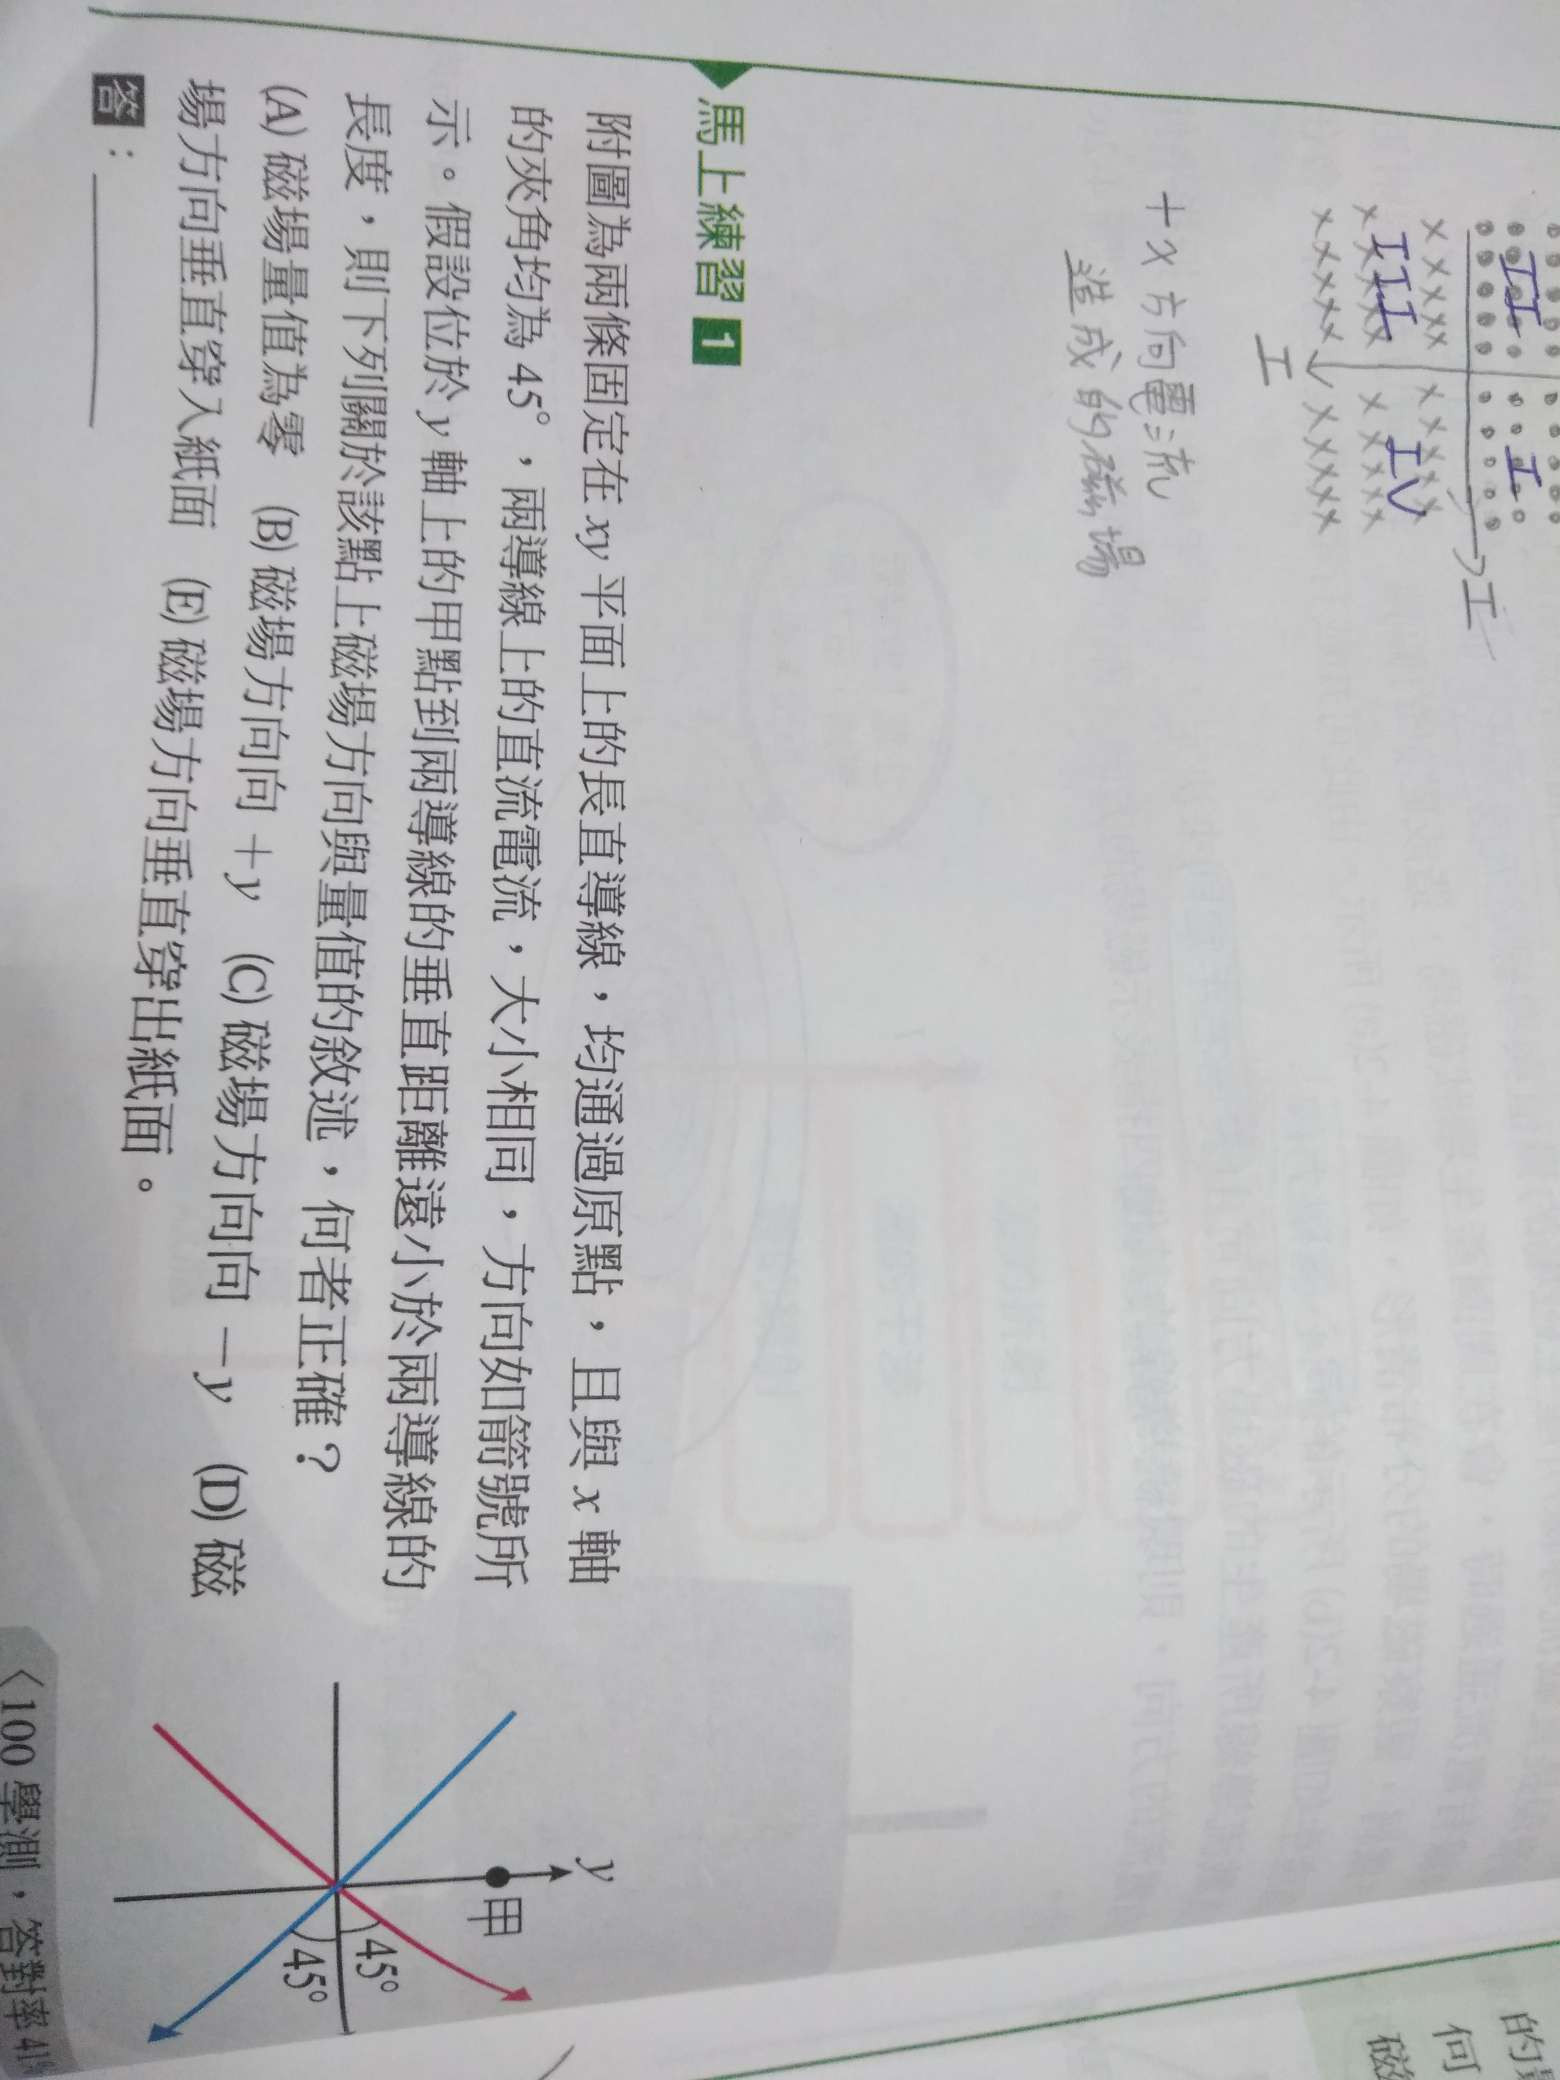 II
I
III
IV
I
I
+x方向電流
造成的磁場
馬上練習 1
附圖為兩條固定在 xy 平面上的長直導線,均通過原點,且與 x 軸
的夾角均為 45°,兩導線上的直流電流,大小相同,方向如箭號所
示。假設位於 y 軸上的甲點到兩導線的垂直距離遠小於兩導線的
長度,則下列關於該點上磁場方向與量值的敘述,何者正確?
(A) 磁場量值為零 (B) 磁場方向向 +y (C) 磁場方向向 -y (D) 磁
場方向垂直穿入紙面 (E) 磁場方向垂直穿出紙面。
答:
y
甲
45°
45°
〈100 學測,答對率 41%
的
何
磁